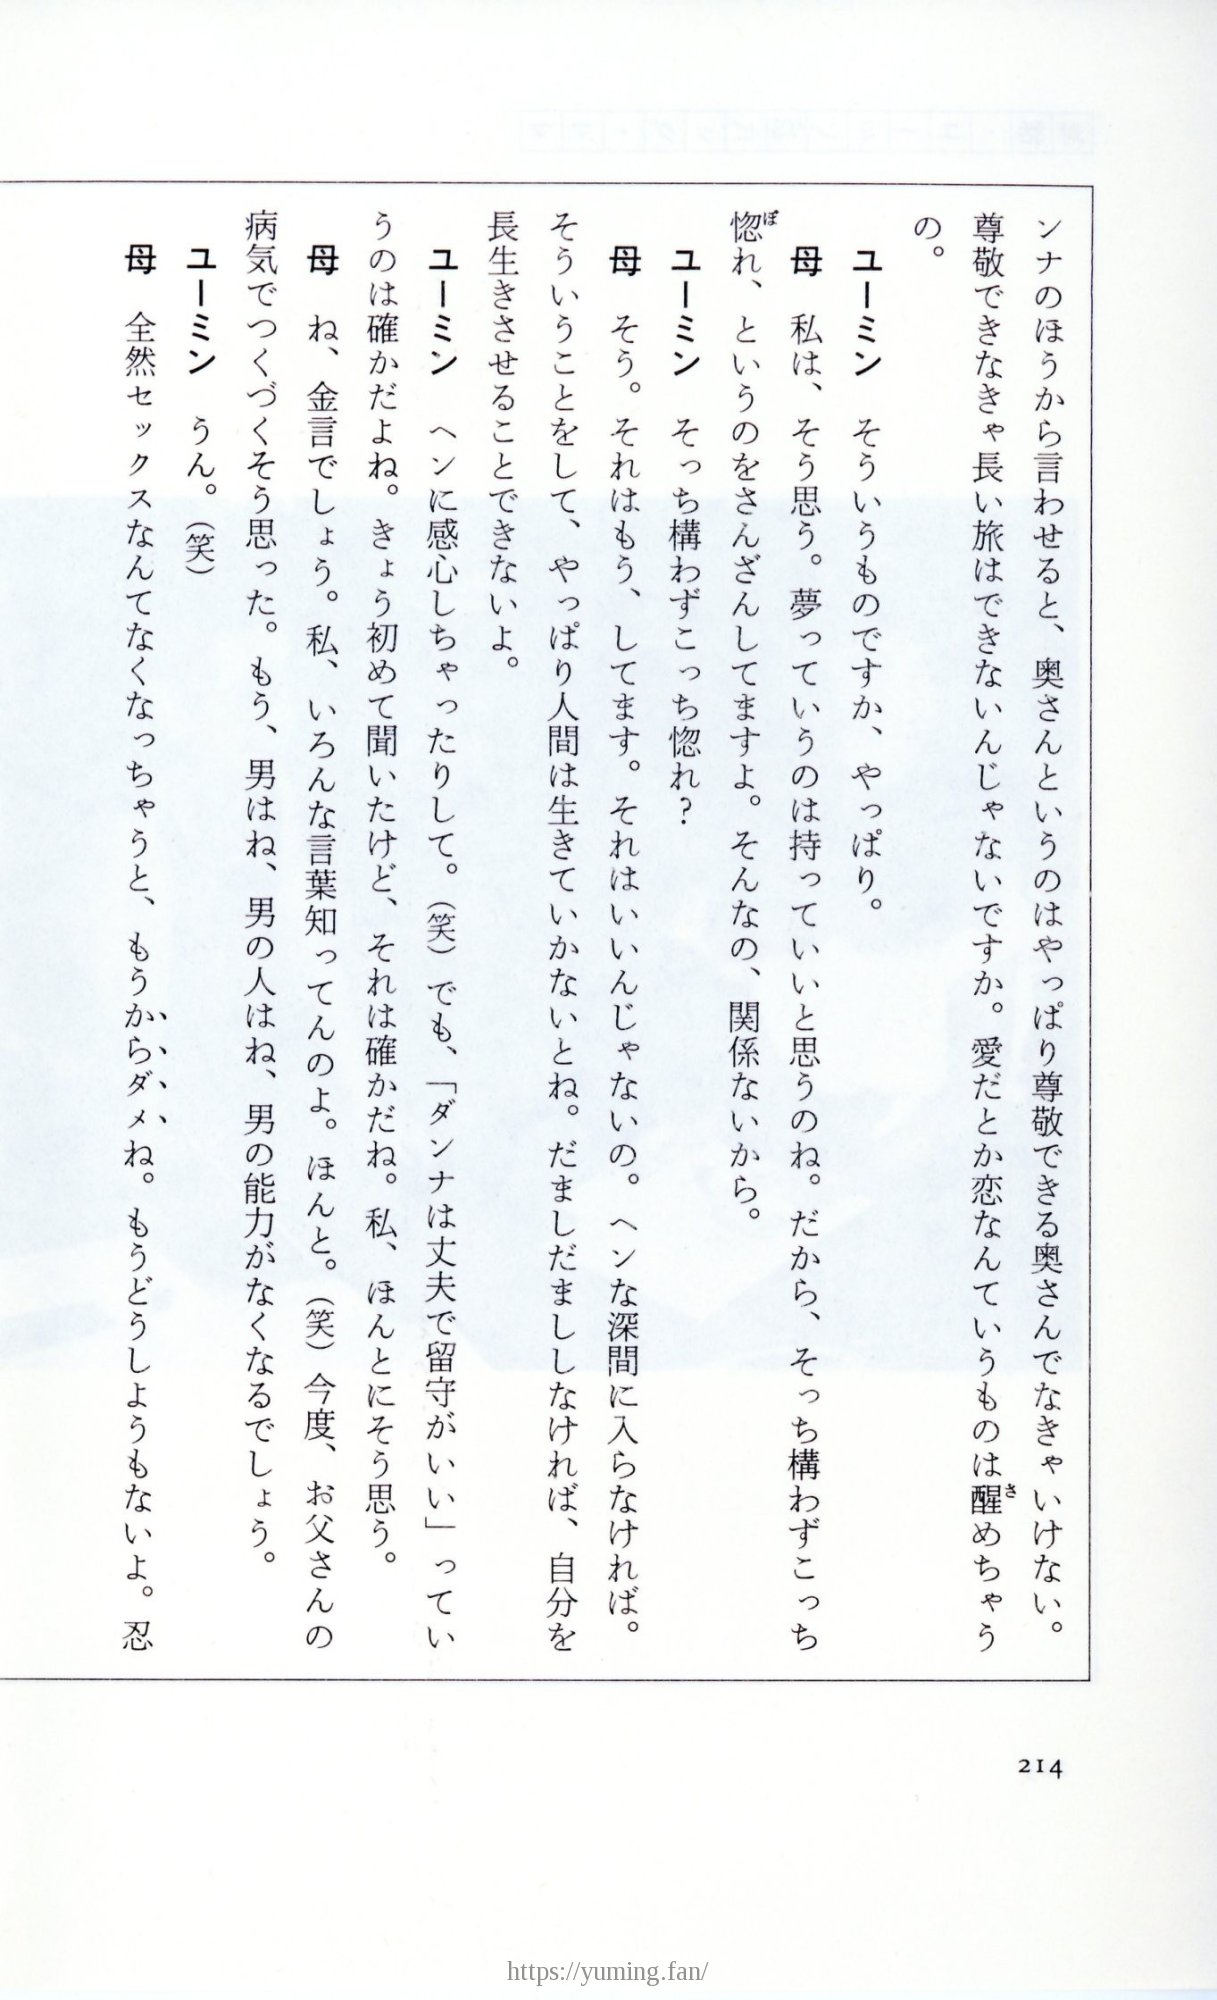 ンナのほうから言わせると、奥さんというのはやっぱり尊敬できる奥さんでなきゃいけない。
尊敬できなきゃ長い旅はできないんじゃないですか。愛だとか恋なんていうものは醒めちゃう
の。
ユーミン　そういうものですか、やっぱり。
母　私は、そう思う。夢っていうのは持っていいと思うのね。だから、そっち構わずこっち
惚れ、というのをさんざんしてますよ。そんなの、関係ないから。
ユーミン　そっち構わずこっち惚れ？
母　そう。それはもう、してます。それはいいんじゃないの。ヘンな深間に入らなければ。
そういうことをして、やっぱり人間は生きていかないとね。だましだまししなければ、自分を
長生きさせることできないよ。
ユーミン　ヘンに感心しちゃったりして。（笑）でも、「ダンナは丈夫で留守がいい」ってい
うのは確かだよね。きょう初めて聞いたけど、それは確かだね。私、ほんとにそう思う。
母　ね、金言でしょう。私、いろんな言葉知ってんのよ。ほんと。（笑）今度、お父さんの
病気でつくづくそう思った。もう、男はね、男の人はね、男の能力がなくなるでしょう。
ユーミン　うん。（笑）
母　全然セックスなんてなくなっちゃうと、もうからダメね。もうどうしようもないよ。忍
214
https://yuming.fan/